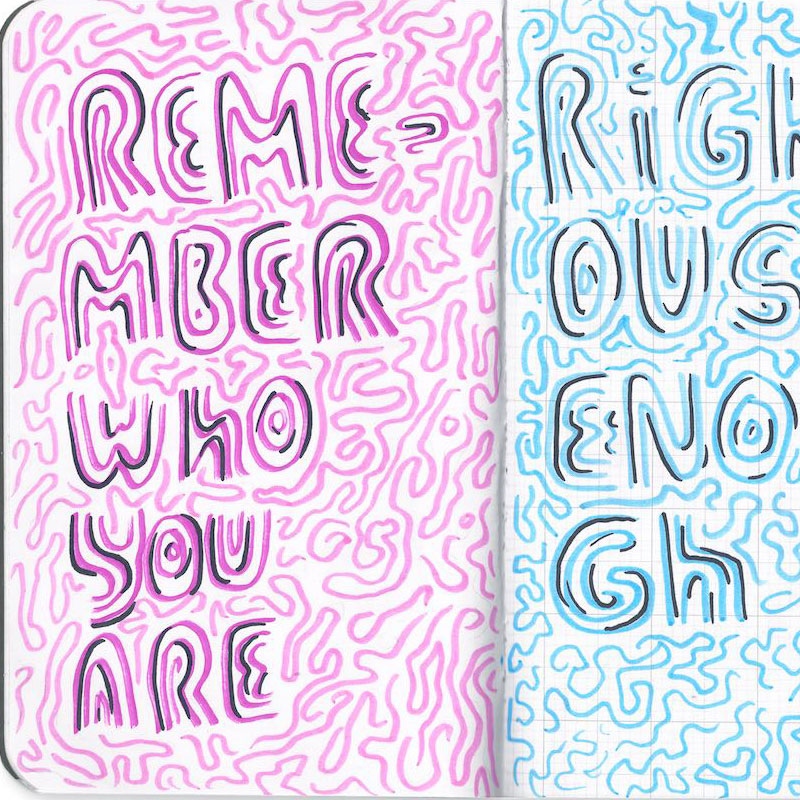 REME-
MBER
WHO
YOU
ARE
RiGH
OUS
ENO
Gh